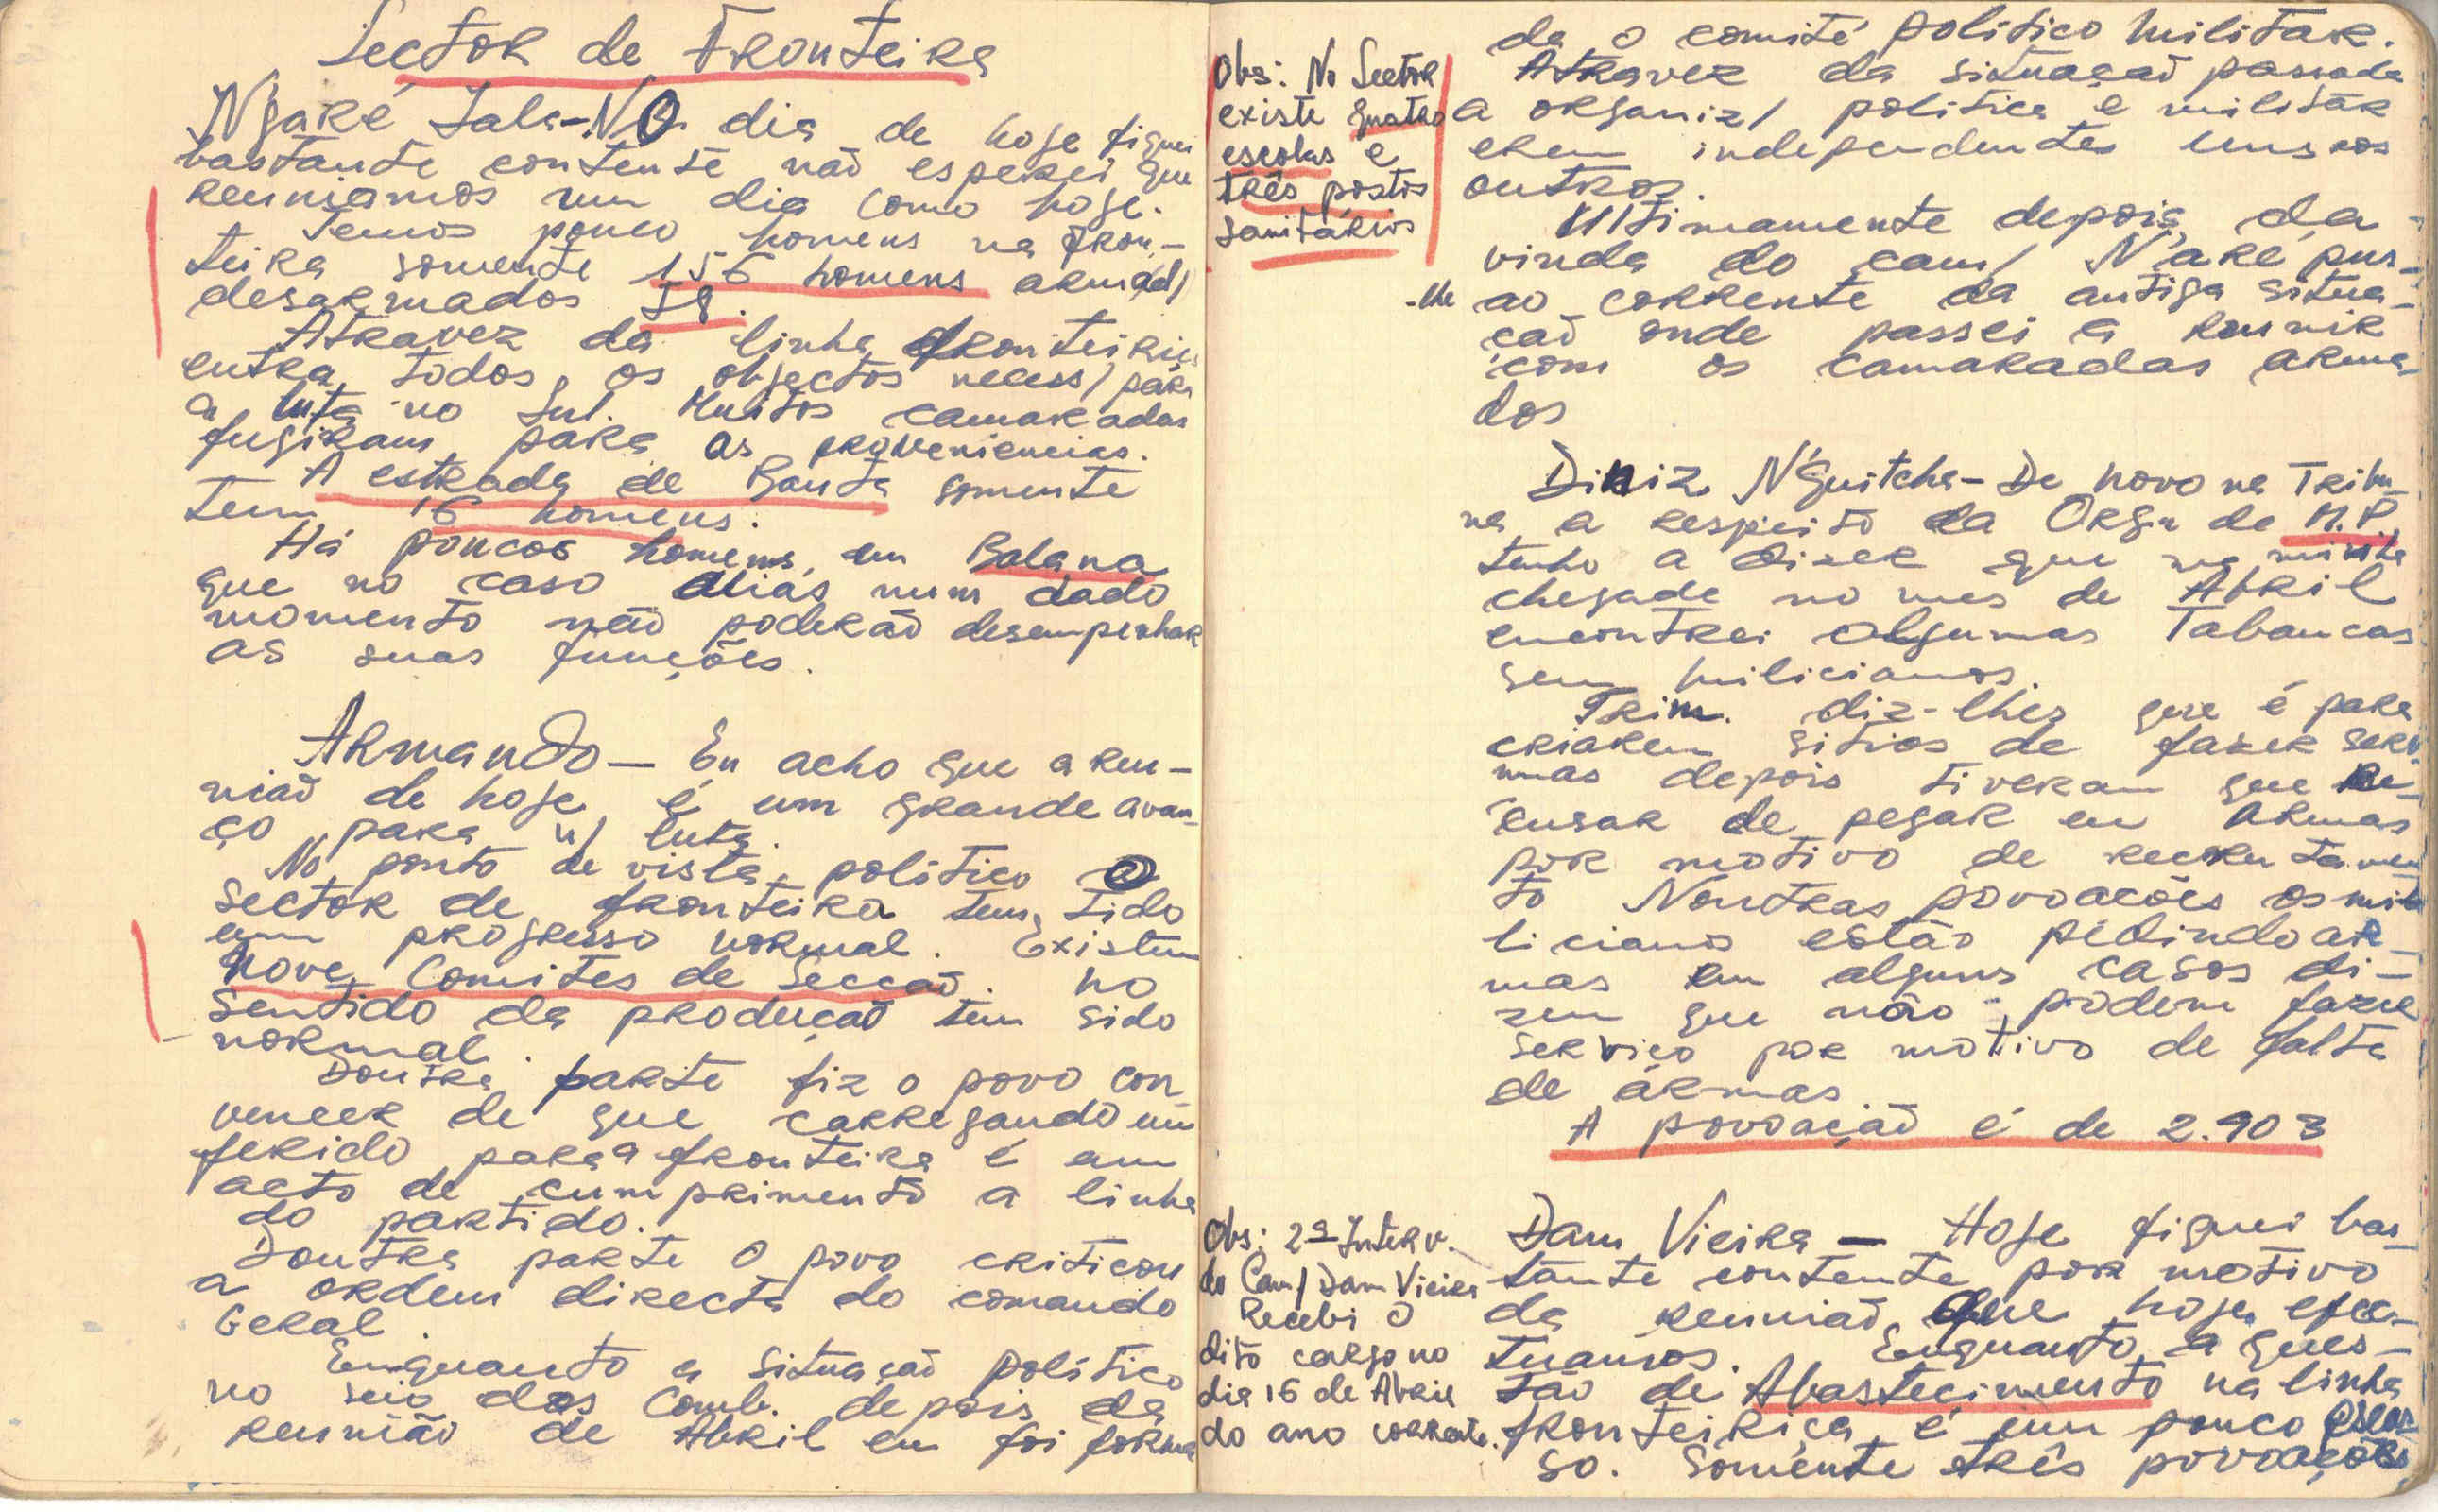 Sector de Fronteira
N'Garé Iala-NO dia de hoje fiquei
bastante contente não esperei que
reuniamos um dia como hoje.
Temos pouco homens na fron-
teira somente 156 homens armad/
desarmados 58.
Atravez da linha fronteiriça
entra todos os objectos necess/ para
a luta no Sul. Muitos camaradas
fugiram para as proveniencias.
A estrada de Banta somente
tem 16 homens.
Há poucos homens em Balana
que no caso aliás num dado
momento não poderão desempenhar
as suas funções.
Armando - Eu acho que a reu-
nião de hoje é um grande avan-
ço para n/ luta.
No ponto de vista politico o
sector de fronteira tem tido
um progresso normal. Existem
nove Comites de Secção. no
sentido da producção tem sido
normal.
Doutra parte fiz o povo con
vencer de que carregando um
ferido para a fronteira é um
acto de cumprimento a linha
do partido.
Doutra parte o povo criticou
a ordem directa do comando
Geral.
Enquanto a situação politico
no seio dos Comb. depois da
reunião de Abril em foi forma
Obs: No Sector
existe quatro
escolas e
três postos
sanitários
da o comité politico militar.
Atravez da situação passada
a organiz/ politica e militar
eram independentes uns nos
outros.
Ultimamente depois da
vinda do cam/ N'aré pus-
-me ao corrente da antiga situa-
ção onde passei a reunir
com os camaradas arma-
dos
Diniz N'Guitcha - De novo na Tribu-
na a respeito da Orga de M.P.
tenho a dizer que na minha
chegada no mes de Abril
encontrei algumas Tabancas
sem milicianos.
Trim. diz-lhes que é para
criarem sitios de fazer serv.
mas depois tiveram que re-
cusar de pegar em armas
por motivo de recrutamen
to Noutras povoações os mili
licianos estão pedindo ar-
mas em alguns casos di-
zem que não podem fazer
serviço por motivo de falta
de ármas
A povoação é de 2.903
Obs: 2ª Interv.
do Cam/ Dam Vieira
Recebi o
dito cargo no
dia 16 de Abril
do ano corrente.
Dam Vieira - Hoje fiquei bas-
tante contente por motivo
da reunião que hoje efec-
tuamos. Enquanto a ques-
tão de Abastecimento na linha
fronteiriça é um pouco escas
so. Somente três povoações